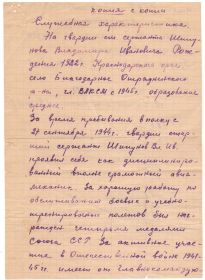 копия с копии
Служебная характеристика
На гвардии ст. сержанта Шипу-
нова Владимира Ивановича рож-
дения 1922 г. Краснодарский край
село Благодарное Отрадненского
р-на, чл. ВЛКСМ с 194 г. образование
среднее.
За время пребывания в полку с
21 сентября 1944 г. гвардии стар-
ший сержант Шипунов В.И.
проявил себя как дисциплиниро-
ванный вполне грамотный авиа-
механик. За хорошую работу по
обслуживанию боевых и учебно-
тренировочных полетов был наг-
ражден четырьмя медалями
Союза ССР. За активное учас-
тие в Отечественной войне 1941-
45 гг. имеет от